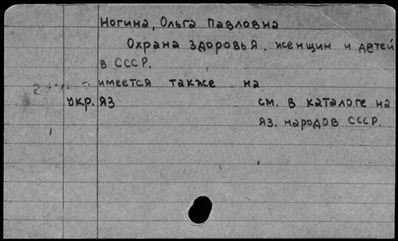 Ногина, Ольга Павловна
Охрана здоровья, женщин и детей
в СССР.
имеется также на
укр. яз см. в каталоге на
яз. народов СССР.